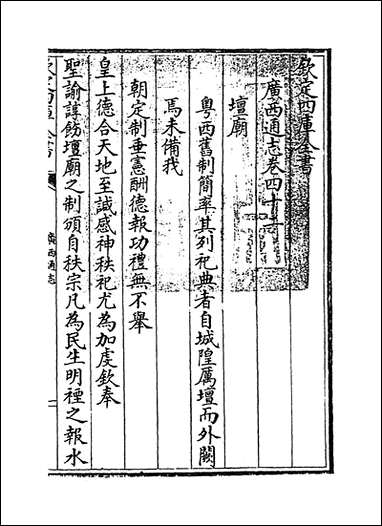 欽定四庫全書
廣西通志卷四十二
壇廟
粵西舊制簡率其列祀典者自城隍厲壇而外闕
焉未備我
朝定制垂憲酬德報功禮無不舉
皇上德合天地至誠感神秩祀尤為加虔欽奉
聖諭諄飭壇廟之制頒自秩宗凡為民生明禋之報水
廣西通志